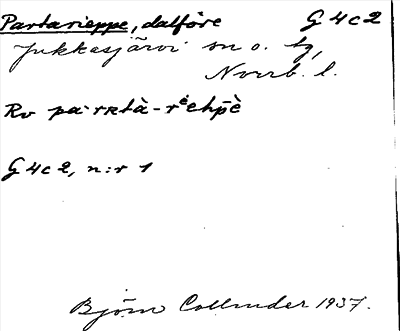 Partarieppe, dalföre G 4 c 2
Jukkasjärvi sn o. tg,
Norrb. l.
Rv
G 4 c 2, n:r 1
Björn Collinder 1937.